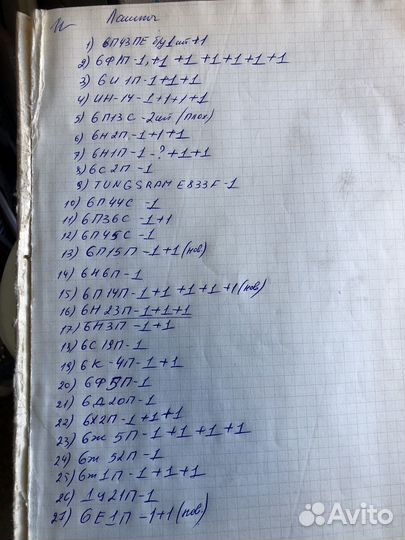 Лампы
1) 6П43ПЕ б/у 1шт+1
2) 6Ф1П-1,+1 +1 +1+1+1+1
3) 6И1П-1+1+1
4) ИН-14-1+1+1+1
5) 6П13С-2шт (плох)
6) 6Н2П-1+1+1
7) 6Н1П-1-?+1+1
8) 6С2П-1
9) TUNGSRAM E833F-1
10) 6П44С-1
11) 6П36С-1+1
12) 6П45С-1
13) 6П15П-1+1(нов)
14) 6Н6П-1
15) 6П14П-1+1+1+1+1(нов)
16) 6Н23П-1+1+1
17) 6Н3П-1+1
18) 6С19П-1
19) 6К-4П-1+1
20) 6Ф5П-1
21) 6Д20П-1
22) 6Х2П-1+1+1
23) 6ж5П-1+1+1+1
24) 6ж52П-1
25) 6ж1П-1+1+1
26) 1ч21П-1
27) 6Е1П-1+1(нов)
Avito